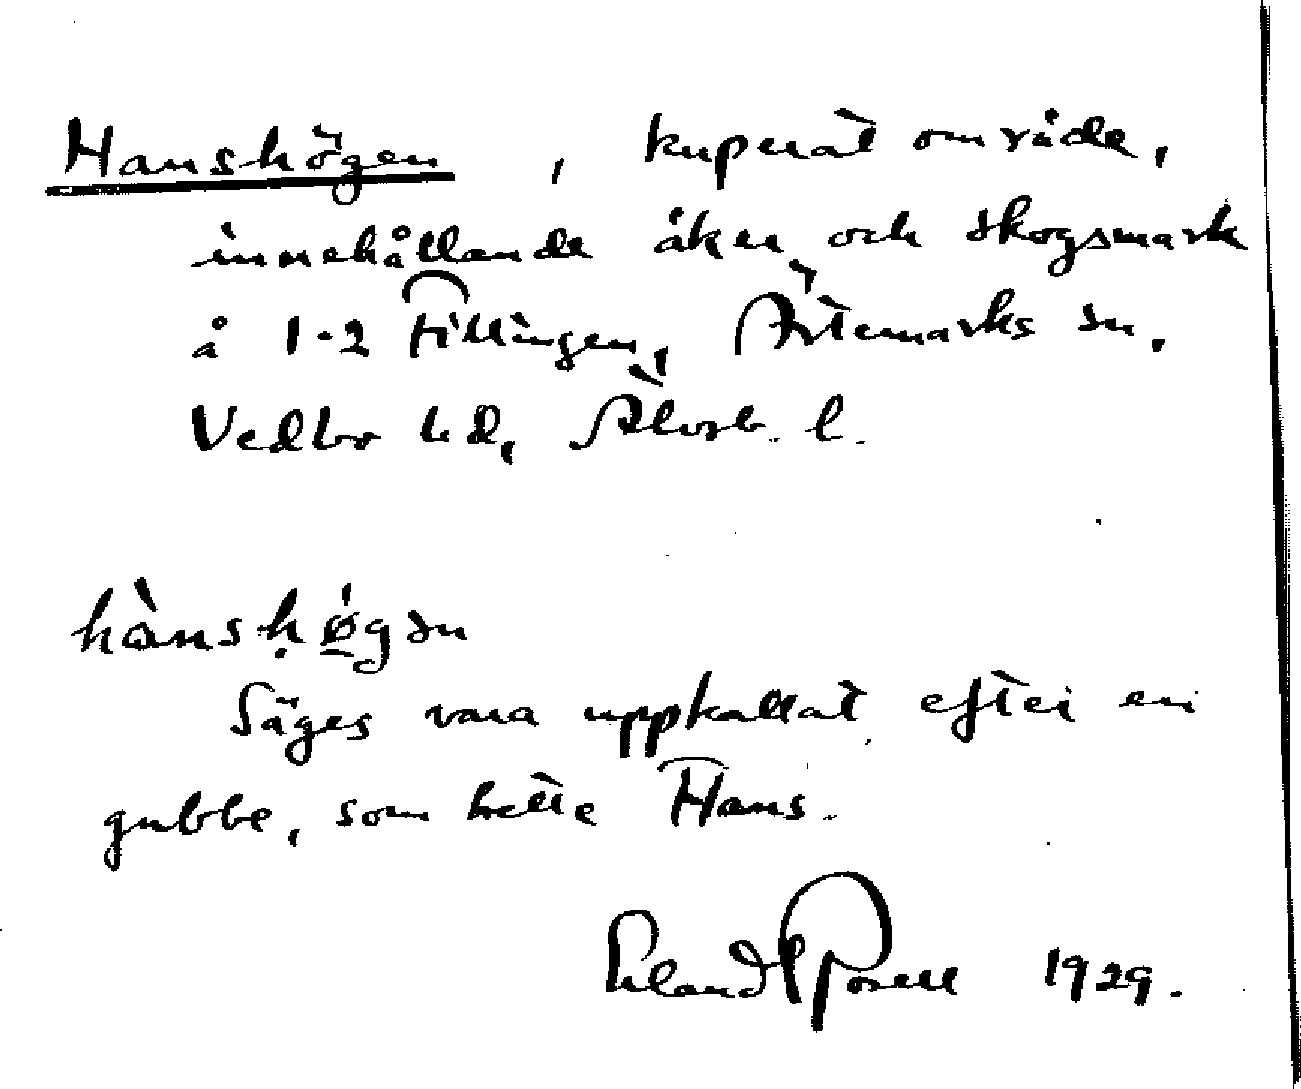 Hanshögen, kuperat område,
innehållande åker och skogsmark
å 1-2 Fillingen, Ärtemarks sn.
Vedbo hd, Älvsb. l.
hànsḥǿ̱gən
Säges vara uppkallat efter en
gubbe, som hette Hans.
Erland Rosell 1929.